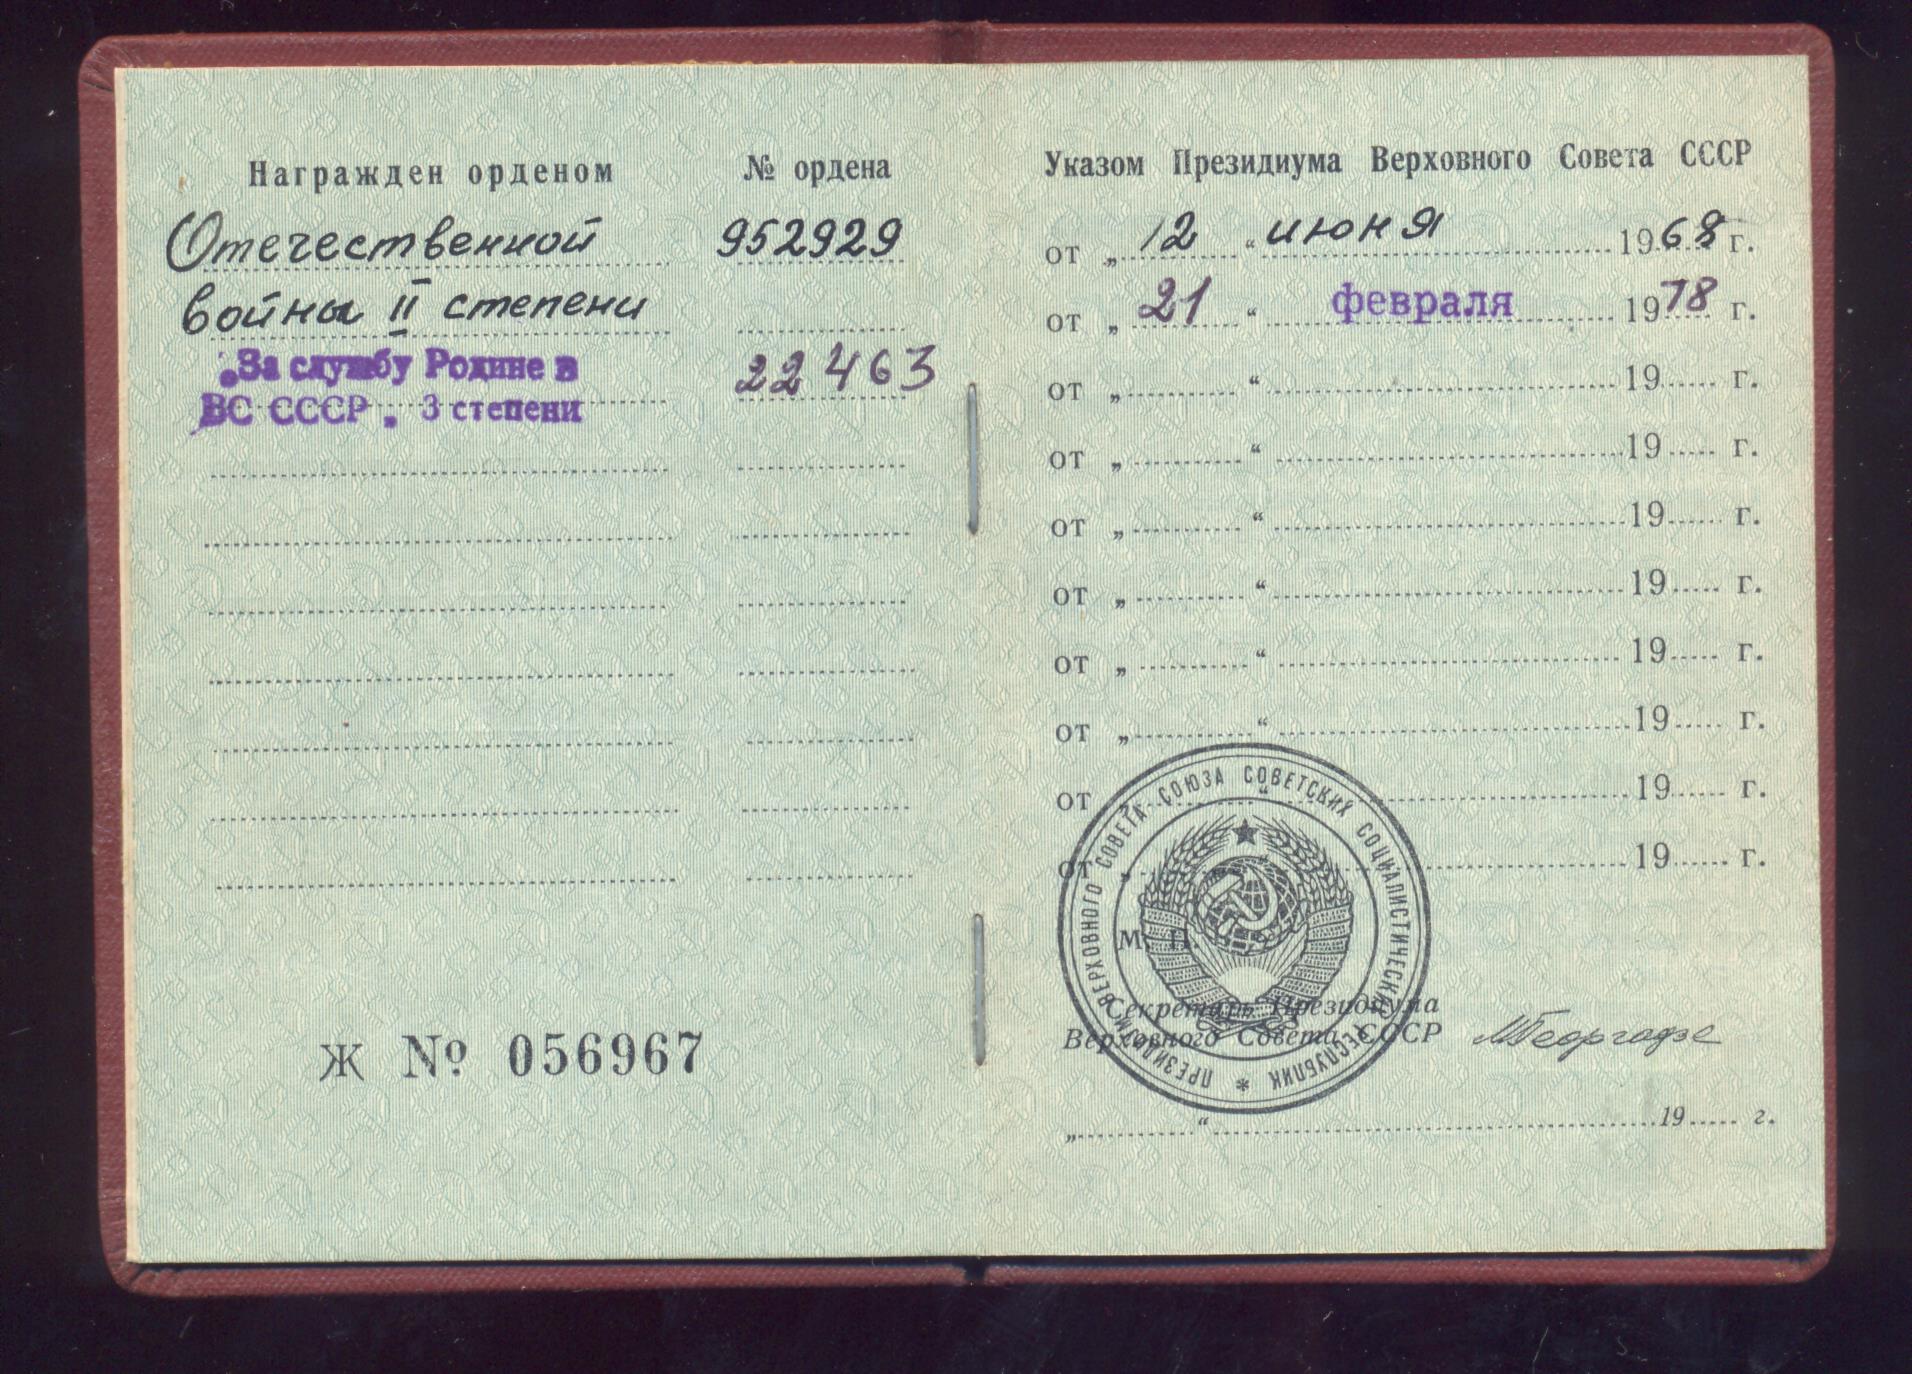 Награжден орденом № ордена
Отечественной 952929
войны II степени
„За службу Родине в 22463
ВС СССР„ 3 степени
Ж № 056967
Указом Президиума Верховного Совета СССР
от „ 12 “ июня 1968 г.
от „ 21 “ февраля 1978 г.
от „ “ 19 г.
от „ “ 19 г.
от „ “ 19 г.
от „ “ 19 г.
от „ “ 19 г.
от „ “ 19 г.
от „ “ 19 г.
от „ “ 19 г.
М. П.
ПРЕЗИДИУМ ВЕРХОВНОГО СОВЕТА СОЮЗА СОВЕТСКИХ СОЦИАЛИСТИЧЕСКИХ РЕСПУБЛИК *
Секретарь Президиума
Верховного Совета СССР МГеоргадзе
„ “ 19 г.